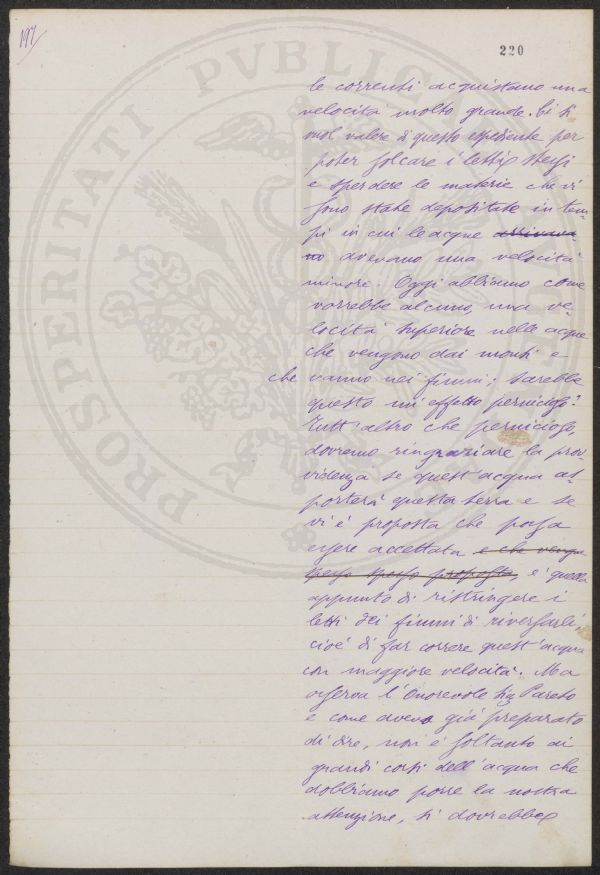 197
220
PROSPERITATI PVBLICAE
le correnti acquistano una
velocità molto grande. Ci si
vuol valere di questo espediente per
poter solcare i letti stessi
e sperdere le materie che vi
sono state depositate in tem=
pi in cui le acque arrivava
no avevano una velocità
minore. Oggi abbiamo come
vorrebbe alcuno, una ve=
locità superiore nelle acque
che vengono dai monti e
che vanno nei fiumi; sarebbe
questo un effetto pernicioso?
Tutt'altro che pernicioso,
dovremo ringraziare la prov
videnza se quest'acqua as=
porterà questa terra e se
vi è proposta che possa
essere accettata e che venga
spesso spesso proposta, è quella
appunto di ristringere i
letti dei fiumi di
cioè di far correre quest'acqua
con maggiore velocità. Ma
osserva l'Onorevole Sig Pareto
e come avevo già preparato
di dire, non è soltanto ai
grandi corsi dell'acqua che
dobbiamo porre la nostra
attenzione, si dovrebbe